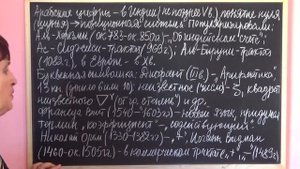 Арабские цифры – в Индии (не позднее V в.) понятие нуля
(сунья) → позиционная система. Популяризировали:
Аль-Хорезми (ок. 783-ок. 850гг.) "Об индийском счёте";
Ас- -трактат (969г.); Аль-Бируни-трактат
(10 г.), в Европе - в X в.
Буквенная символика: Диофант (III в.) - "Арифметика"
13 кн. (дошло до нас 10) неизвестное (число) - ξ, квадрат
неизвестного - (от др. степень") и др.
Франсуа Виет (1540-1603г) - новый язык, придумал
термин "коэффициент" -
Николай Орем (1330-1382гг) - "+", Иоганн Видман
(1460-ок. 1505гг.) - в коммерческом трактате + и - (1489г.)